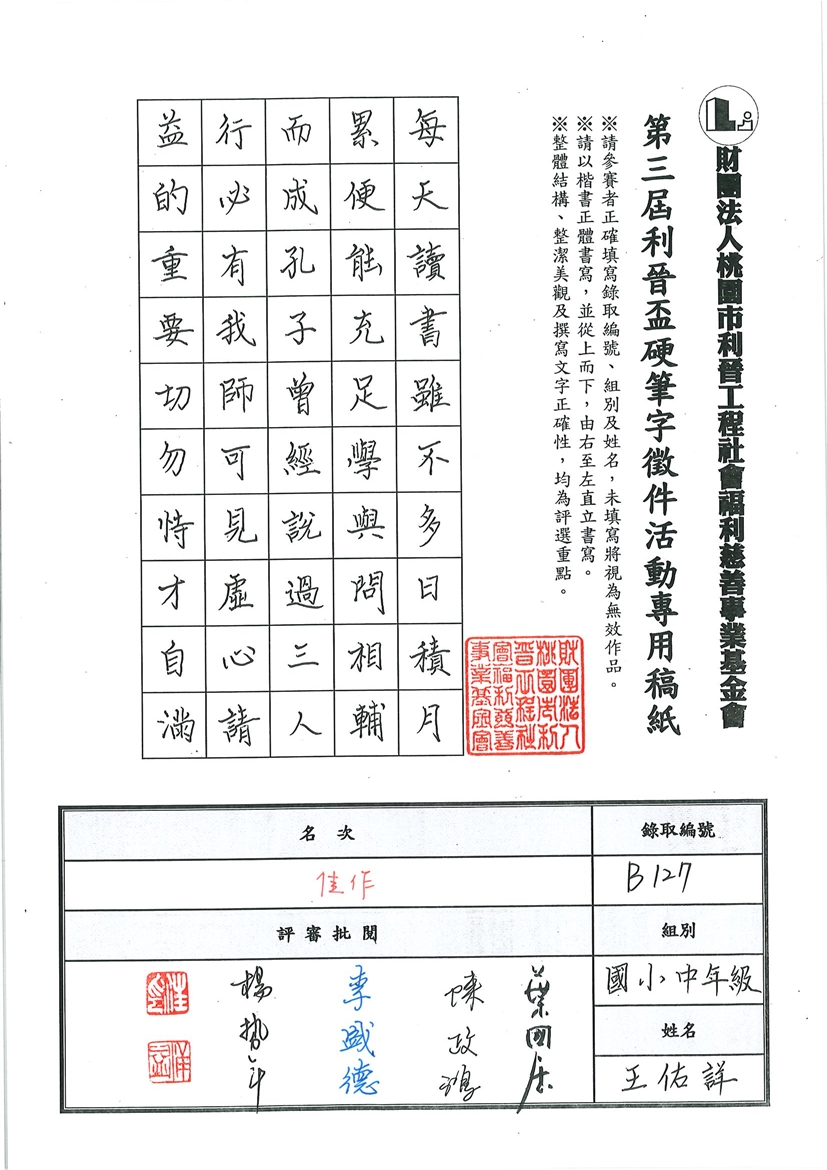 財團法人桃園市利晉工程社會福利慈善事業基金會
第三屆利晉盃硬筆字徵件活動專用稿紙
※請參賽者正確填寫錄取編號、組別及姓名，未填寫將視為無效作品。
※請以楷書正體書寫，並從上而下，由右至左直立書寫。
※整體結構、整潔美觀及撰寫文字正確性，均為評選重點。
每天讀書雖不多日積月
累便能充足學與問相輔
而成孔子曾經說過三人
行必有我師可見虛心請
益的重要切勿恃才自滿
財團法人
桃園市利
晉工程社
會福利慈善
事業基金會
錄取編號
B127
組別
國小中年級
姓名
王佑詳
名次
佳作
評審批閱
葉國居
陳政鴻
李盛德